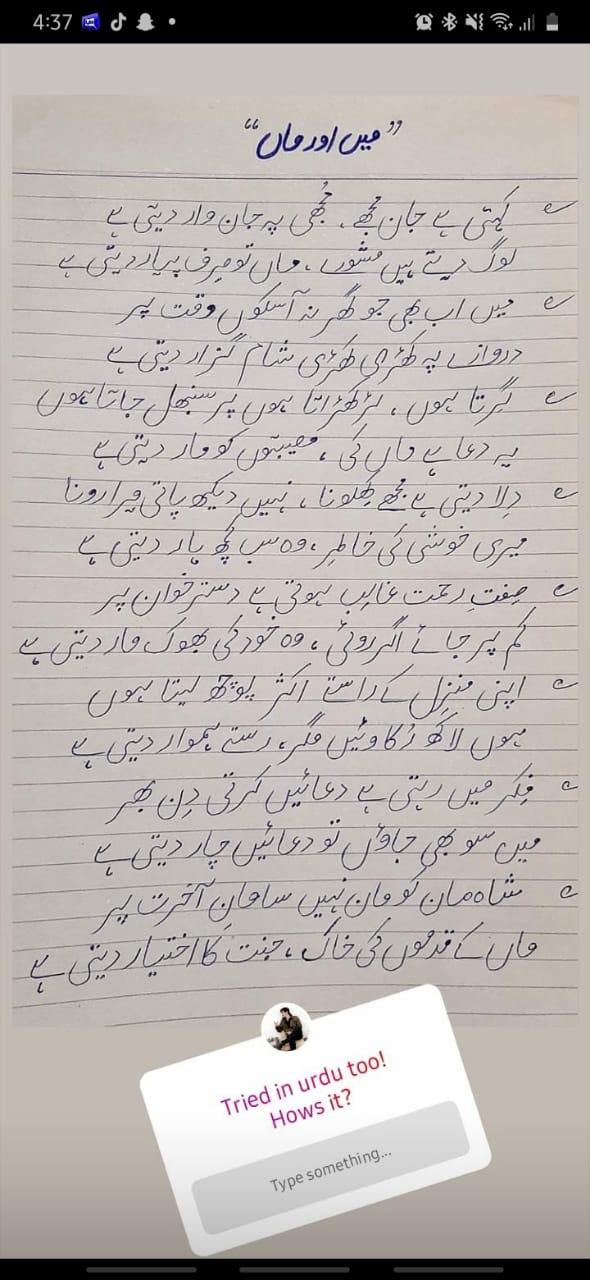 4:37
”میں اور ماں“
کہتی ہے جان مجھے، مُجھی پہ جان وار دیتی ہے
لوگ دیتے ہیں مشورے، ماں تو صرف پیار دیتی ہے
میں اب بھی جو گھر نہ آ سکوں وقت پر
دروازے پہ کھڑی کھڑی شام گزار دیتی ہے
گِرتا ہوں، لڑکھڑاتا ہوں پر سنبھل جاتا ہوں
یہ دعا ہے ماں کی، مصیبتوں کو مار دیتی ہے
دِلا دیتی ہے مجھے کھلونا، نہیں دیکھ پاتی میرا رونا
میری خوشی کی خاطر، وہ سب کچھ ہار دیتی ہے
صِفتِ رحمت غالب ہوتی ہے دسترخوان پر
کم پڑ جائے اگر روٹی، وہ خود کی بھوک مار دیتی ہے
اپنی منزل کے راستے اکثر پوچھ لیتا ہوں
ہوں لاکھ رُکاوٹیں مگر، رستے ہموار دیتی ہے
فِکر میں رہتی ہے دعائیں کرتی دِن بھر
میں سو بھی جاؤں تو دعائیں چار دیتی ہے
شاہ مان کو مان نہیں سامانِ آخرت پر
ماں کے قدموں کی خاک، جنت کا اختیار دیتی ہے
Tried in urdu too!
Hows it?
Type something...